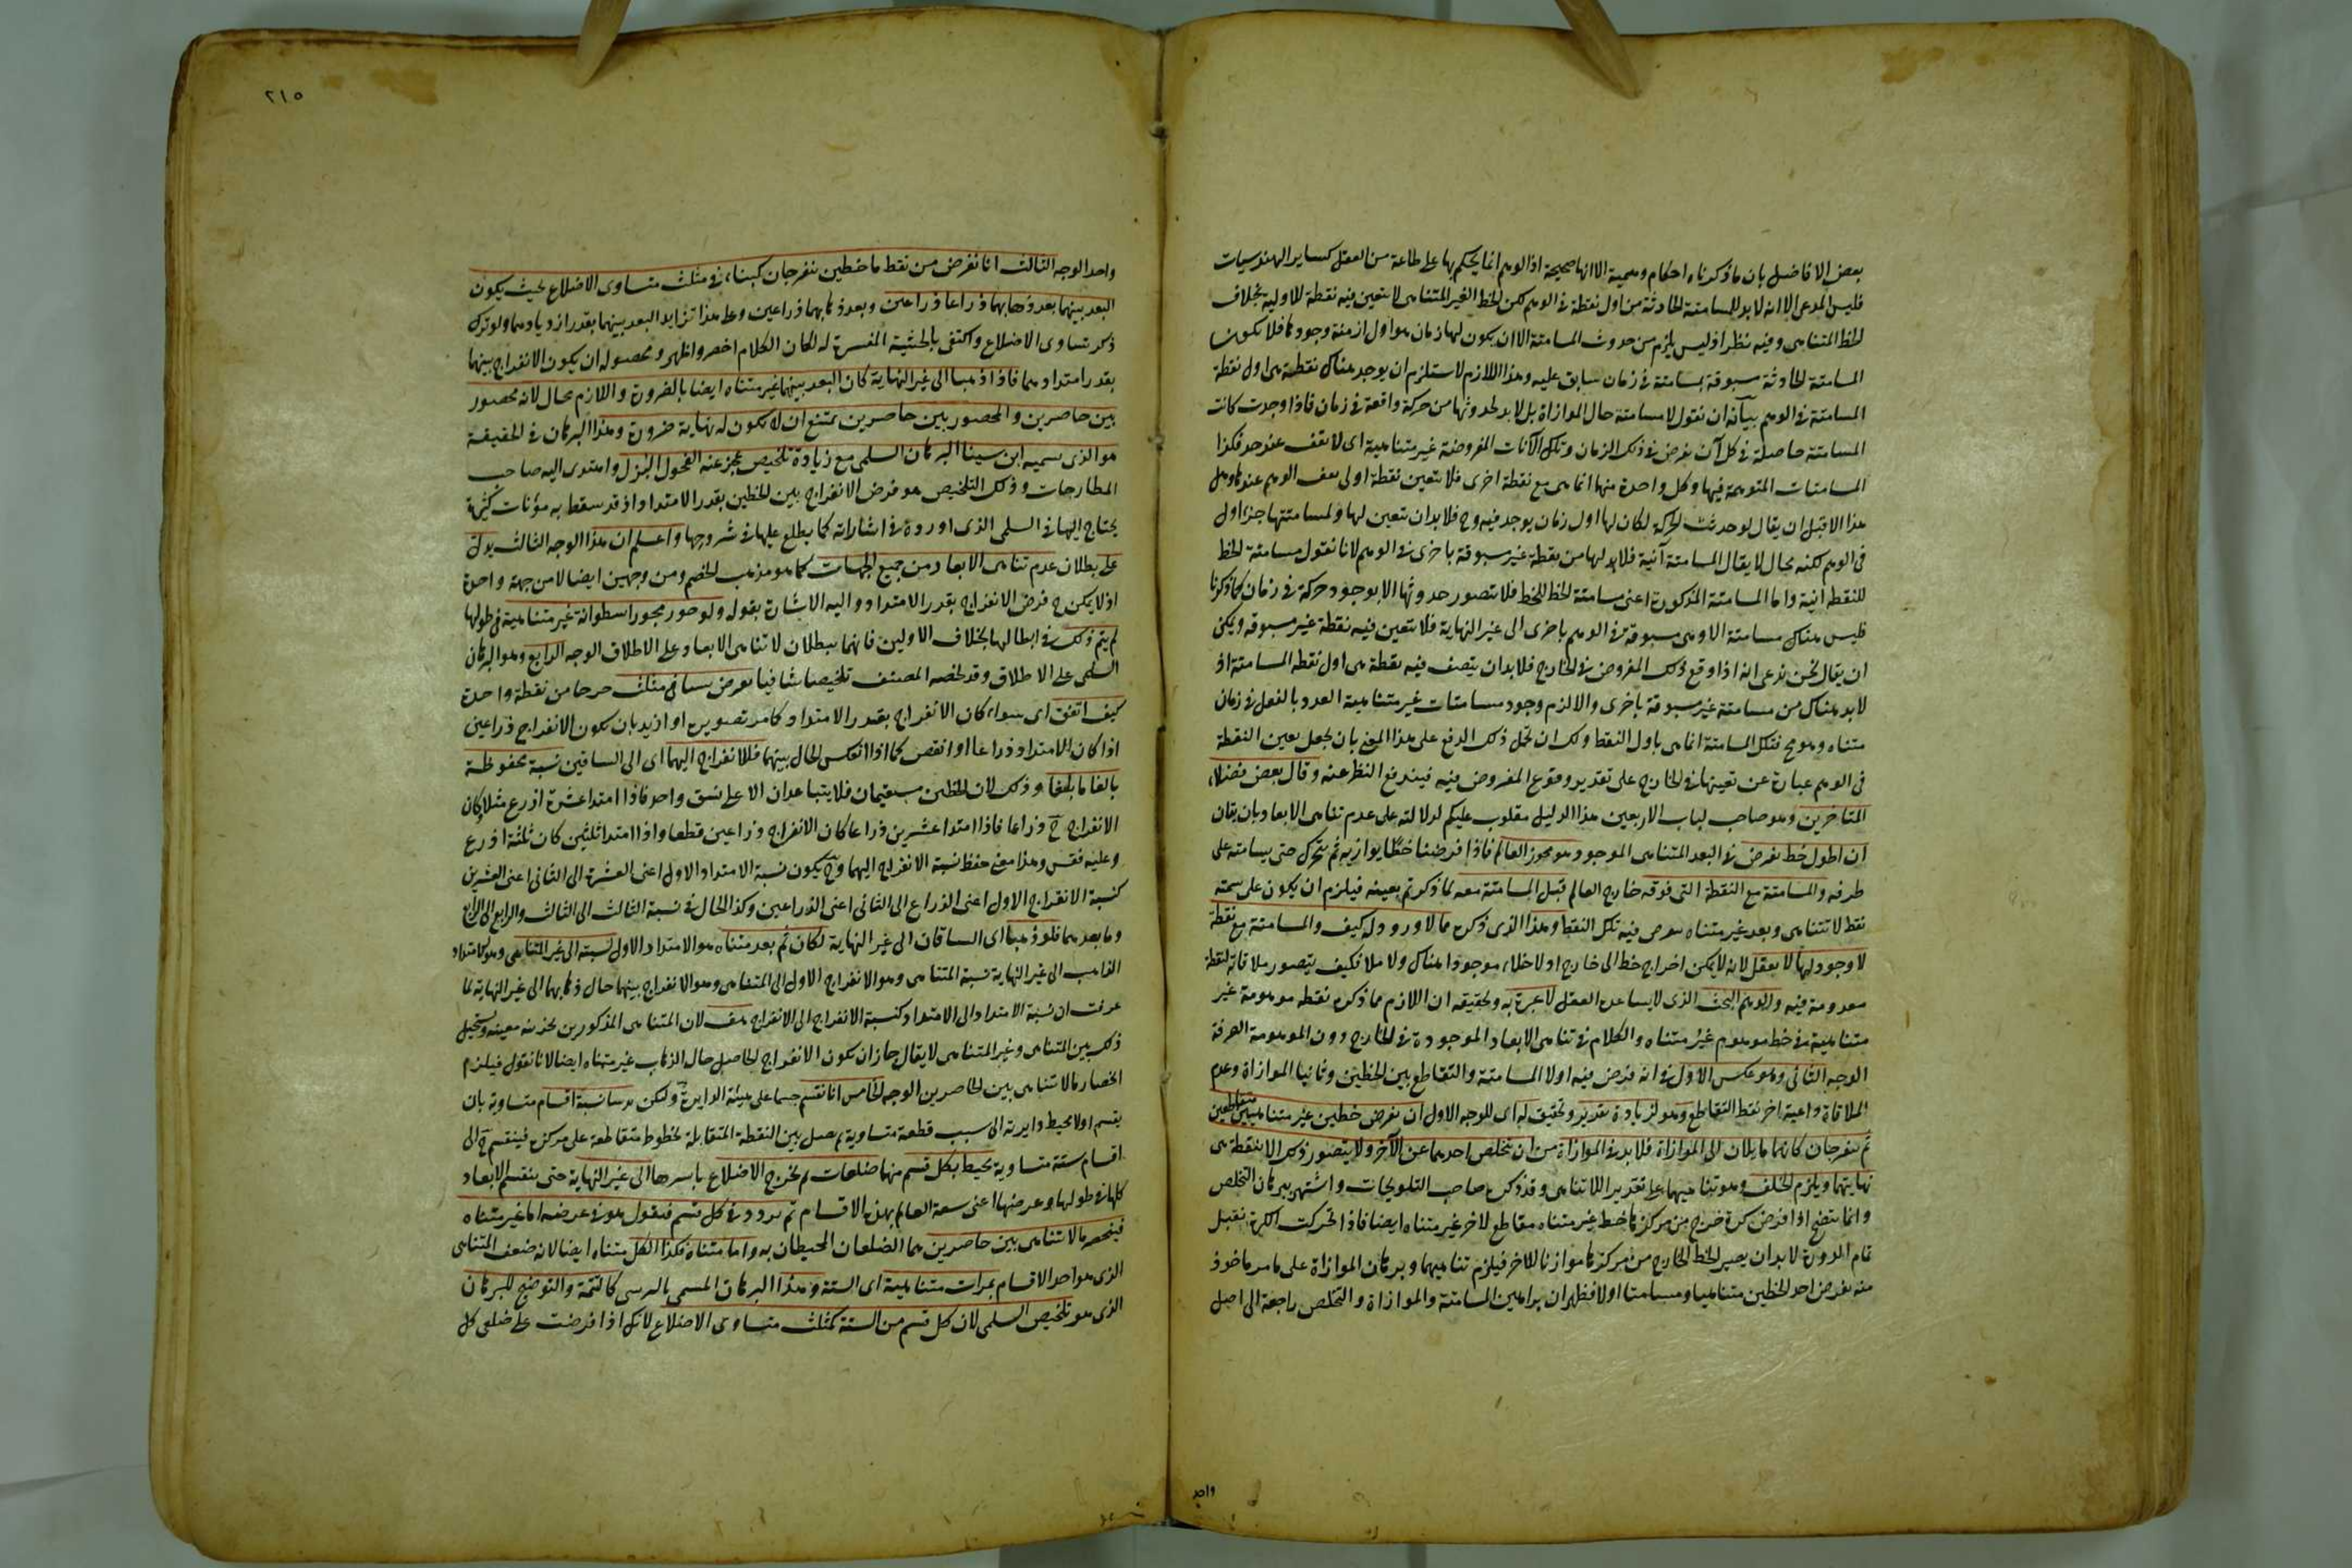 بعض الافاضل بان ما ذكرناه احكام وهمية الا انها صحيحة اذ الوهم انما يحكم بها على طاعة من العقل كساير الهندسيات
فليس المدعى الا انه لا بد للمسامتة الحادثة من اول نقطة فى الوهم لكن الخط الغير المتناهى لا يتعين فيه نقطة للاولية بخلاف
الخط المتناهى وفيه نظر اذ ليس يلزم من حدوث المسامتة الا ان يكون لها زمان هو اول ازمنة وجودها فلا يكون
المسامتة الحادثة مسبوقة بمسامتة فى زمان سابق عليه وهذا اللازم لا يستلزم ان يوجد هناك نقطة هى اول نقطة
المسامتة فى الوهم بيانه ان نقول لا مسامتة حال الموازاة بل لا بد لحدوثها من حركة واقعة فى زمان فاذا وجدت كانت
المسامتة حاصلة فى كل آن يفرض فى ذلك الزمان وتلك الآنات المفروضة غير متناهية اى لا تقف عند حد فكذا
المسامتات المتوهمة فيها وكل واحدة منها انما هى مع نقطة اخرى فلا يتعين نقطة اولى يقف الوهم عندها وهل
هذا الا قبل ان يقال لو حدثت الحركة لكان لها اول زمان يوجد فيه وح فلا بد ان يتعين لها ولمسافتها جزء اول
فى الوهم لكنه محال لا يقال المسامتة آنية فلا بد لها من نقطة غير مسبوقة باخرى فى الوهم لانا نقول مسامتة الخط
للنقطة آنية واما المسامتة المذكورة اعنى مسامتة الخط للخط فلا يتصور حدوثها الا بوجود حركة فى زمان كما ذكرنا
فليس هناك مسامتة الا وهى مسبوقة فى الوهم باخرى الى غير النهاية فلا يتعين فيه نقطة غير مسبوقه ويمكن
ان يقال نحن ندعى انه اذا وقع ذلك المفروض فى الخارج فلا بد ان يتصف فيه نقطة هى اول نقطه المسامتة اذ
لا بد هناك من مسامتة غير مسبوقة باخرى والا لزم وجود مسامتات غير متناهية العدد بالفعل فى زمان
متناه وهو مح فتلك المسامتة انما هى باول النقط ولك ان تحمل ذلك الدفع على هذا المعنى بان يجعل تعين النقطة
فى الوهم عبارة عن تعينها فى الخارج على تقدير وقوع المفروض فيه فيندفع النظر عنه وقال بعض فضلاء
المتاخرين وهو صاحب لباب الاربعين هذا الدليل مقلوب عليكم لدلالته على عدم تناهى الابعاد بان يقال
ان اطول خط يفرض فى البعد المتناهى الموجود هو محور العالم فاذا فرضنا خطا يوازيه ثم يتحرك حتى يسامته على
طرفه والمسامتة مع النقطة التى فوقه خارج العالم قبل المسامتة معه لما ذكرتم بعينه فيلزم ان يكون على سمته
نقط لا تتناهى وبعد غير متناه يفرض فيه تلك النقط وهذا الذى ذكره مما لا ورود له كيف والمسامتة مع نقطة
لا وجود لها لا يعقل لانه لا يمكن اخراج خط الى خارج اذ لا خلاء موجودا هناك ولا ملا فكيف يتصور ملاقاته لنقطة
معدومة فيه والوهم البحت الذى لا يساعده العقل لا عبرة به وتحقيقه ان اللازم مما ذكره نقطه موهومة غير
متناهية فى خط موهوم غير متناه والكلام فى تناهى الابعاد الموجودة فى الخارج دون الموهومة الصرفة
الوجه الثانى وهو عكس الاول فى انه فرض فيه اولا المسامتة والتقاطع بين الخطين وثانيا الموازاة وعدم
الملاقاة وايته آخر نقط التقاطع وهو لزيادة تقدير وتحقيق له اى للوجه الاول ان نفرض خطين غير متناهيين متقاطعين
ثم ينفرجان كانهما مايلان الى الموازاة فلا بد فى الموازاة من ان يتخلص احدهما عن الآخر ولا يتصور ذلك الا بنقطة هى
نهايتهما ويلزم الخلف وهو تناهيهما على تقدير اللاتناهى وقد ذكره صاحب التلويحات واشتهر ببرهان التخلص
وانما يتضح اذا فرض كرة خرج من مركزها خط غير متناه مقاطع لاخر غير متناه ايضا فاذا تحركت الكرة فقبل
تمام الدورة لا بد ان يصير الخط الخارج من مركزها موازيا للآخر فيلزم تناهيهما وبرهان الموازاة على ما مر ماخوذ
منه بفرض احد الخطين متناهيا ومسامتا اولا فظهر ان براهين المسامتة والموازاة والتخلص راجعة الى اصل
واحد
٢١٥
واحد الوجه الثالث انا نفرض من نقط ما خطين ينفرجان كبناء فى مثلث متساوى الاضلاع بحيث يكون
البعد بينهما بعد ذهابهما ذراعا ذراعا وبعد ذهابهما ذراعين ذراعين وعلى هذا تزايد البعد بينهما بقدر ازديادهما ولو ترك
ذكر تساوى الاضلاع واكتفى بالحيثية المفسرة له لكان الكلام اخصر واظهر ومحصوله ان يكون الانفراج بينهما
بقدر امتدادهما فاذا ذهبا الى غير النهاية كان البعد بينهما غير متناه ايضا بالضرورة واللازم محال لانه محصور
بين حاصرين والمحصور بين حاصرين يمتنع ان لا يكون له نهاية ضرورة وهذا البرهان فى الحقيقة
هو الذى يسميه ابن سينا البرهان السلمى مع زيادة تلخيص عجز عنه الفحول البزل واهتدى اليه صاحب
المطارحات وذلك التلخيص هو فرض الانفراج بين الخطين بقدر الامتداد اذ قد سقط به مؤنات كثيرة
يحتاج اليها فى السلمى الذى اورده فى اشاراته كما يطلع عليها فى شروحها واعلم ان هذا الوجه الثالث يدل
على بطلان عدم تناهى الابعاد من جميع الجهات كما هو مذهب الخصم ومن وجهين ايضا لا من جهة واحدة
اذ لا يمكن ح فرض الانفراج بقدر الامتداد واليه الاشارة بقوله ولو جوز مجوز اسطوانة غير متناهية فى طولها
لم يتم ذلك فى ابطالها بخلاف الاولين فانهما يبطلان لا تناهى الابعاد على الاطلاق الوجه الرابع وهو البرهان
السلمى على الاطلاق وقد لخصه المصنف تلخيصا شافيا نفرض ساقى مثلث خرجا من نقطة واحدة
كيف اتفق اى سواء كان الانفراج بقدر الامتداد كما مر تصويره او ازيد بان يكون الانفراج ذراعين
اذا كان الامتداد ذراعا او انقص كما اذا انعكس الحال بينهما فللانفراج اليهما اى الى الساقين نسبة محفوظة
بالغا ما بلغا وذلك لان الخطين مستقيمان فلا يتباعدان الا على نسق واحد فاذا امتدا عشرة اذرع مثلا وكان
الانفراج ح ذراعا فاذا امتدا عشرين ذراعا كان الانفراج ذراعين قطعا واذا امتدا ثلثين كان ثلثة اذرع
وعليه فقس وهذا معنى حفظ نسبة الانفراج اليهما وح يكون نسبة الامتداد الاول اعنى العشرة الى الثانى اعنى العشرين
كنسبة الانفراج الاول اعنى الذراع الى الثانى اعنى الذراعين وكذا الحال فى نسبة الثالث الى الثالث والرابع الى الرابع
وما بعدهما فلو ذهبا اى الساقان الى غير النهاية لكان ثم بعد متناه هو الامتداد الاول نسبته الى غير المتناهى وهو الامتداد
الذاهب الى غير النهاية نسبة المتناهى وهو الانفراج الاول الى المتناهى وهو الانفراج بينهما حال ذهابهما الى غير النهاية لما
عرفت ان نسبة الامتداد الى الامتداد كنسبة الانفراج الى الانفراج هف لان المتناهى المذكورين بينهما نسبة معينة ويستحيل
ذلك بين المتناهى وغير المتناهى لا يقال جاز ان يكون الانفراج الحاصل حال الذهاب غير متناه ايضا لانا نقول فيلزم
انحصار ما لا يتناهى بين الحاصرين الوجه الخامس انا نقسم جسما على هيئة الدايرة وليكن ترسا ستة اقسام متساوية بان
يقسم اولا محيط دايرته الى ست قطعة متساوية ثم يصل بين النقطة المتقابلة بخطوط متقاطعة على مركزه فينقسم ح الى
اقسام ستة متساوية يحيط بكل قسم منها ضلعان ثم نخرج الاضلاع باسرها الى غير النهاية حتى ينقسم الابعاد
كلها فى طولها وعرضها اعنى سعة العالم بهذه الاقسام ثم نردد فى كل قسم فنقول هو فى عرضه اما غير متناه
فينحصر ما لا يتناهى بين حاصرين هما الضلعان المحيطان به واما متناه فكذا الكل متناه ايضا لانه ضعف المتناهى
الذى هو احد الاقسام بمرات متناهية اى الستة وهذا البرهان المسمى بالترسى كالتتمة والتوضيح للبرهان
الذى هو تلخيص السلمى لان كل قسم من الستة كمثلث متساوى الاضلاع لانك اذا فرضت على ضلعى كل